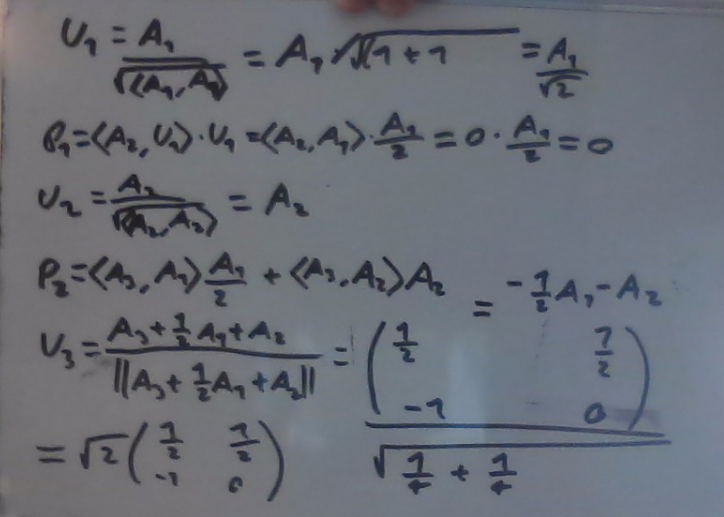 U₁ = A₁/√⟨A₁, A₁⟩ = A₁/√(1+1) = A₁/√2
P₁ = ⟨A₂, U₁⟩·U₁ = ⟨A₂, A₁⟩·A₁/2 = 0·A₁/2 = 0
U₂ = A₂/√⟨A₂, A₂⟩ = A₂
P₂ = ⟨A₃, A₁⟩A₁/2 + ⟨A₃, A₂⟩A₂ = -1/2A₁ - A₂
U₃ = (A₃ + 1/2A₁ + A₂)/||A₃ + 1/2A₁ + A₂|| = (1/2 1/2
-1 0)/√(1/4 + 1/4)
= √2(1/2 1/2
-1 0)